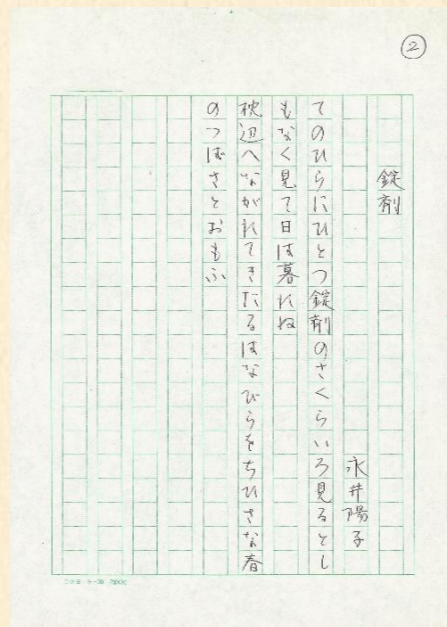 ②
錠剤
永井陽子
てのひらにひとつ錠剤のさくらいろ見るとし
もなく見て日は暮れぬ
枕辺へながれてきたるはなびらをちひさな春
のつばさとおもふ